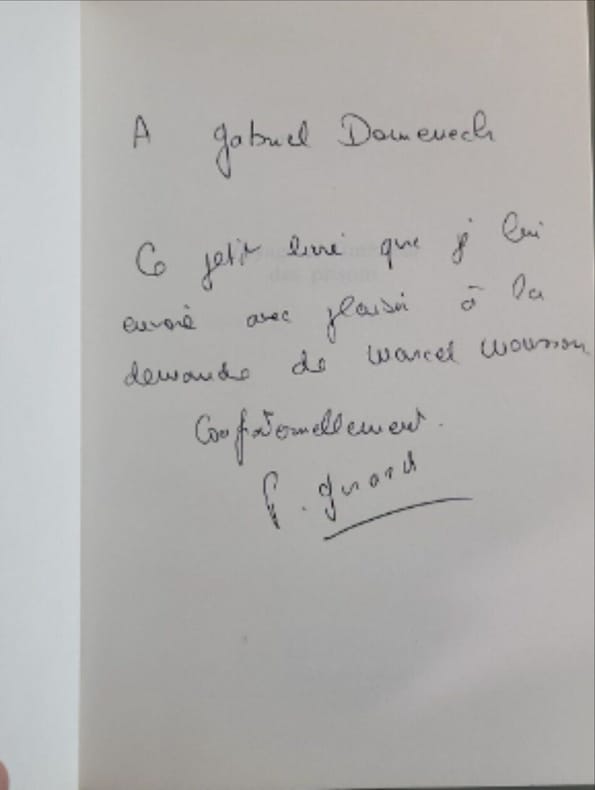 A Gabriel Domenech
Ce petit livre que j' lui
envoie avec plaisir à la
demande de Marcel
Confraternellement.
P. Girard